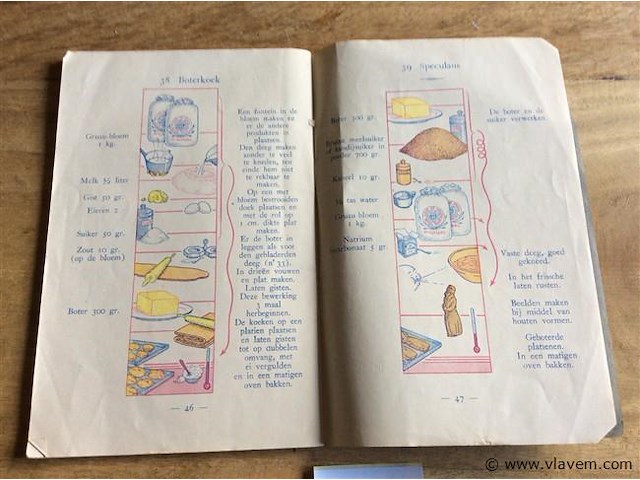 38 Boterkoek
Gruau-bloem
1 kg.
Melk ½ liter
Gist 50 gr.
Eieren 2
Suiker 50 gr.
Zout 10 gr.
(op de bloem)
Boter 300 gr.
Een fontein in de
bloem maken en
er de andere
produkten in
plaatsen.
Den deeg maken
zonder te veel
te kneden, ten
einde hem niet
te rekbaar te
maken.
Op een met
bloem bestrooiden
doek plaatsen en
met de rol op
1 cm. dikte plat
maken.
Er de boter in
leggen als voor
den gebladerden
deeg (n° 33).
In drieën vouwen
en plat maken.
Laten gisten.
Deze bewerking
3 maal
herbeginnen.
De koeken op een
platten plaatsen
en laten gisten
tot op dubbelen
omvang, met
ei vergulden
en in een matigen
oven bakken.
— 46 —
39 Speculaus
Boter 300 gr.
suiker of kandijsuiker in
poeder 700 gr.
Kaneel 10 gr.
tas water
Gruau-bloem
1 kg.
Natrium
bicarbonaat 5 gr.
De boter en de
suiker verwerken.
Vaste deeg, goed
gekneed.
In het frissche
laten rusten.
Beelden maken
bij middel van
houten vormen.
Geboterde
platienen.
In een matigen
oven bakken.
— 47 —
© www.vlavem.com